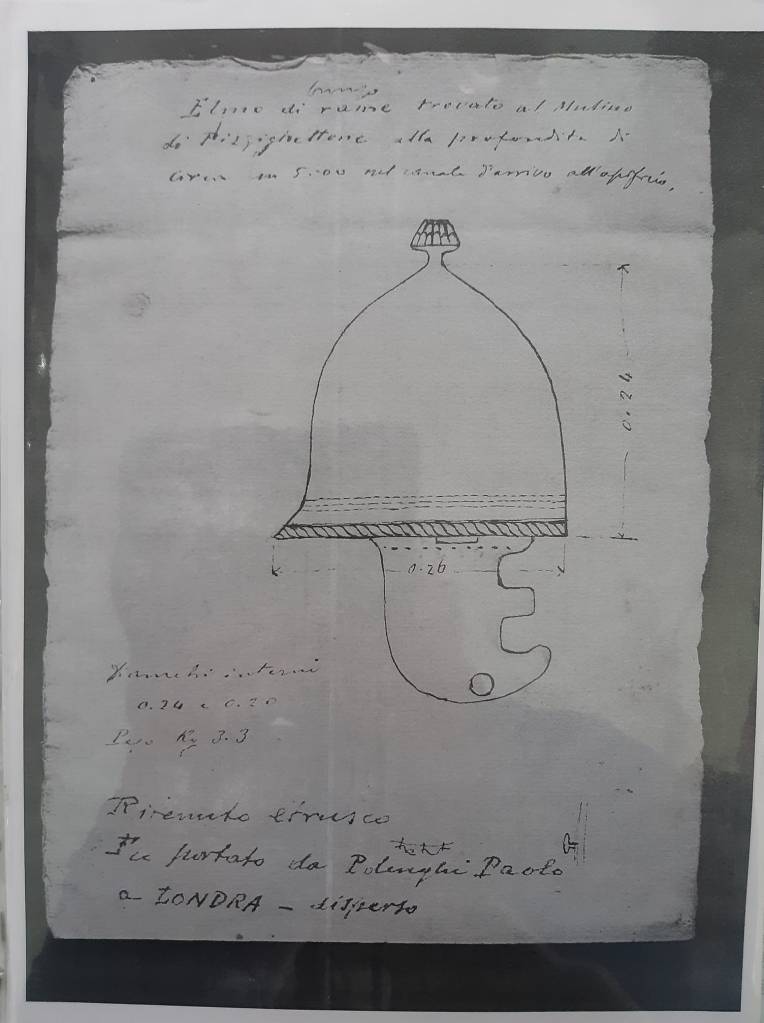 bronzo
Elmo di rame trovato al Mulino
di Pizzighettone alla profondità di
circa m 5.00 nel canale d'arrivo all'opificio.
0.24
0.26
interni
0.24 e 0.20
Peso Kg 3.3
Ritenuto etrusco
Fu portato da Polenghi Paolo
a LONDRA - disperso